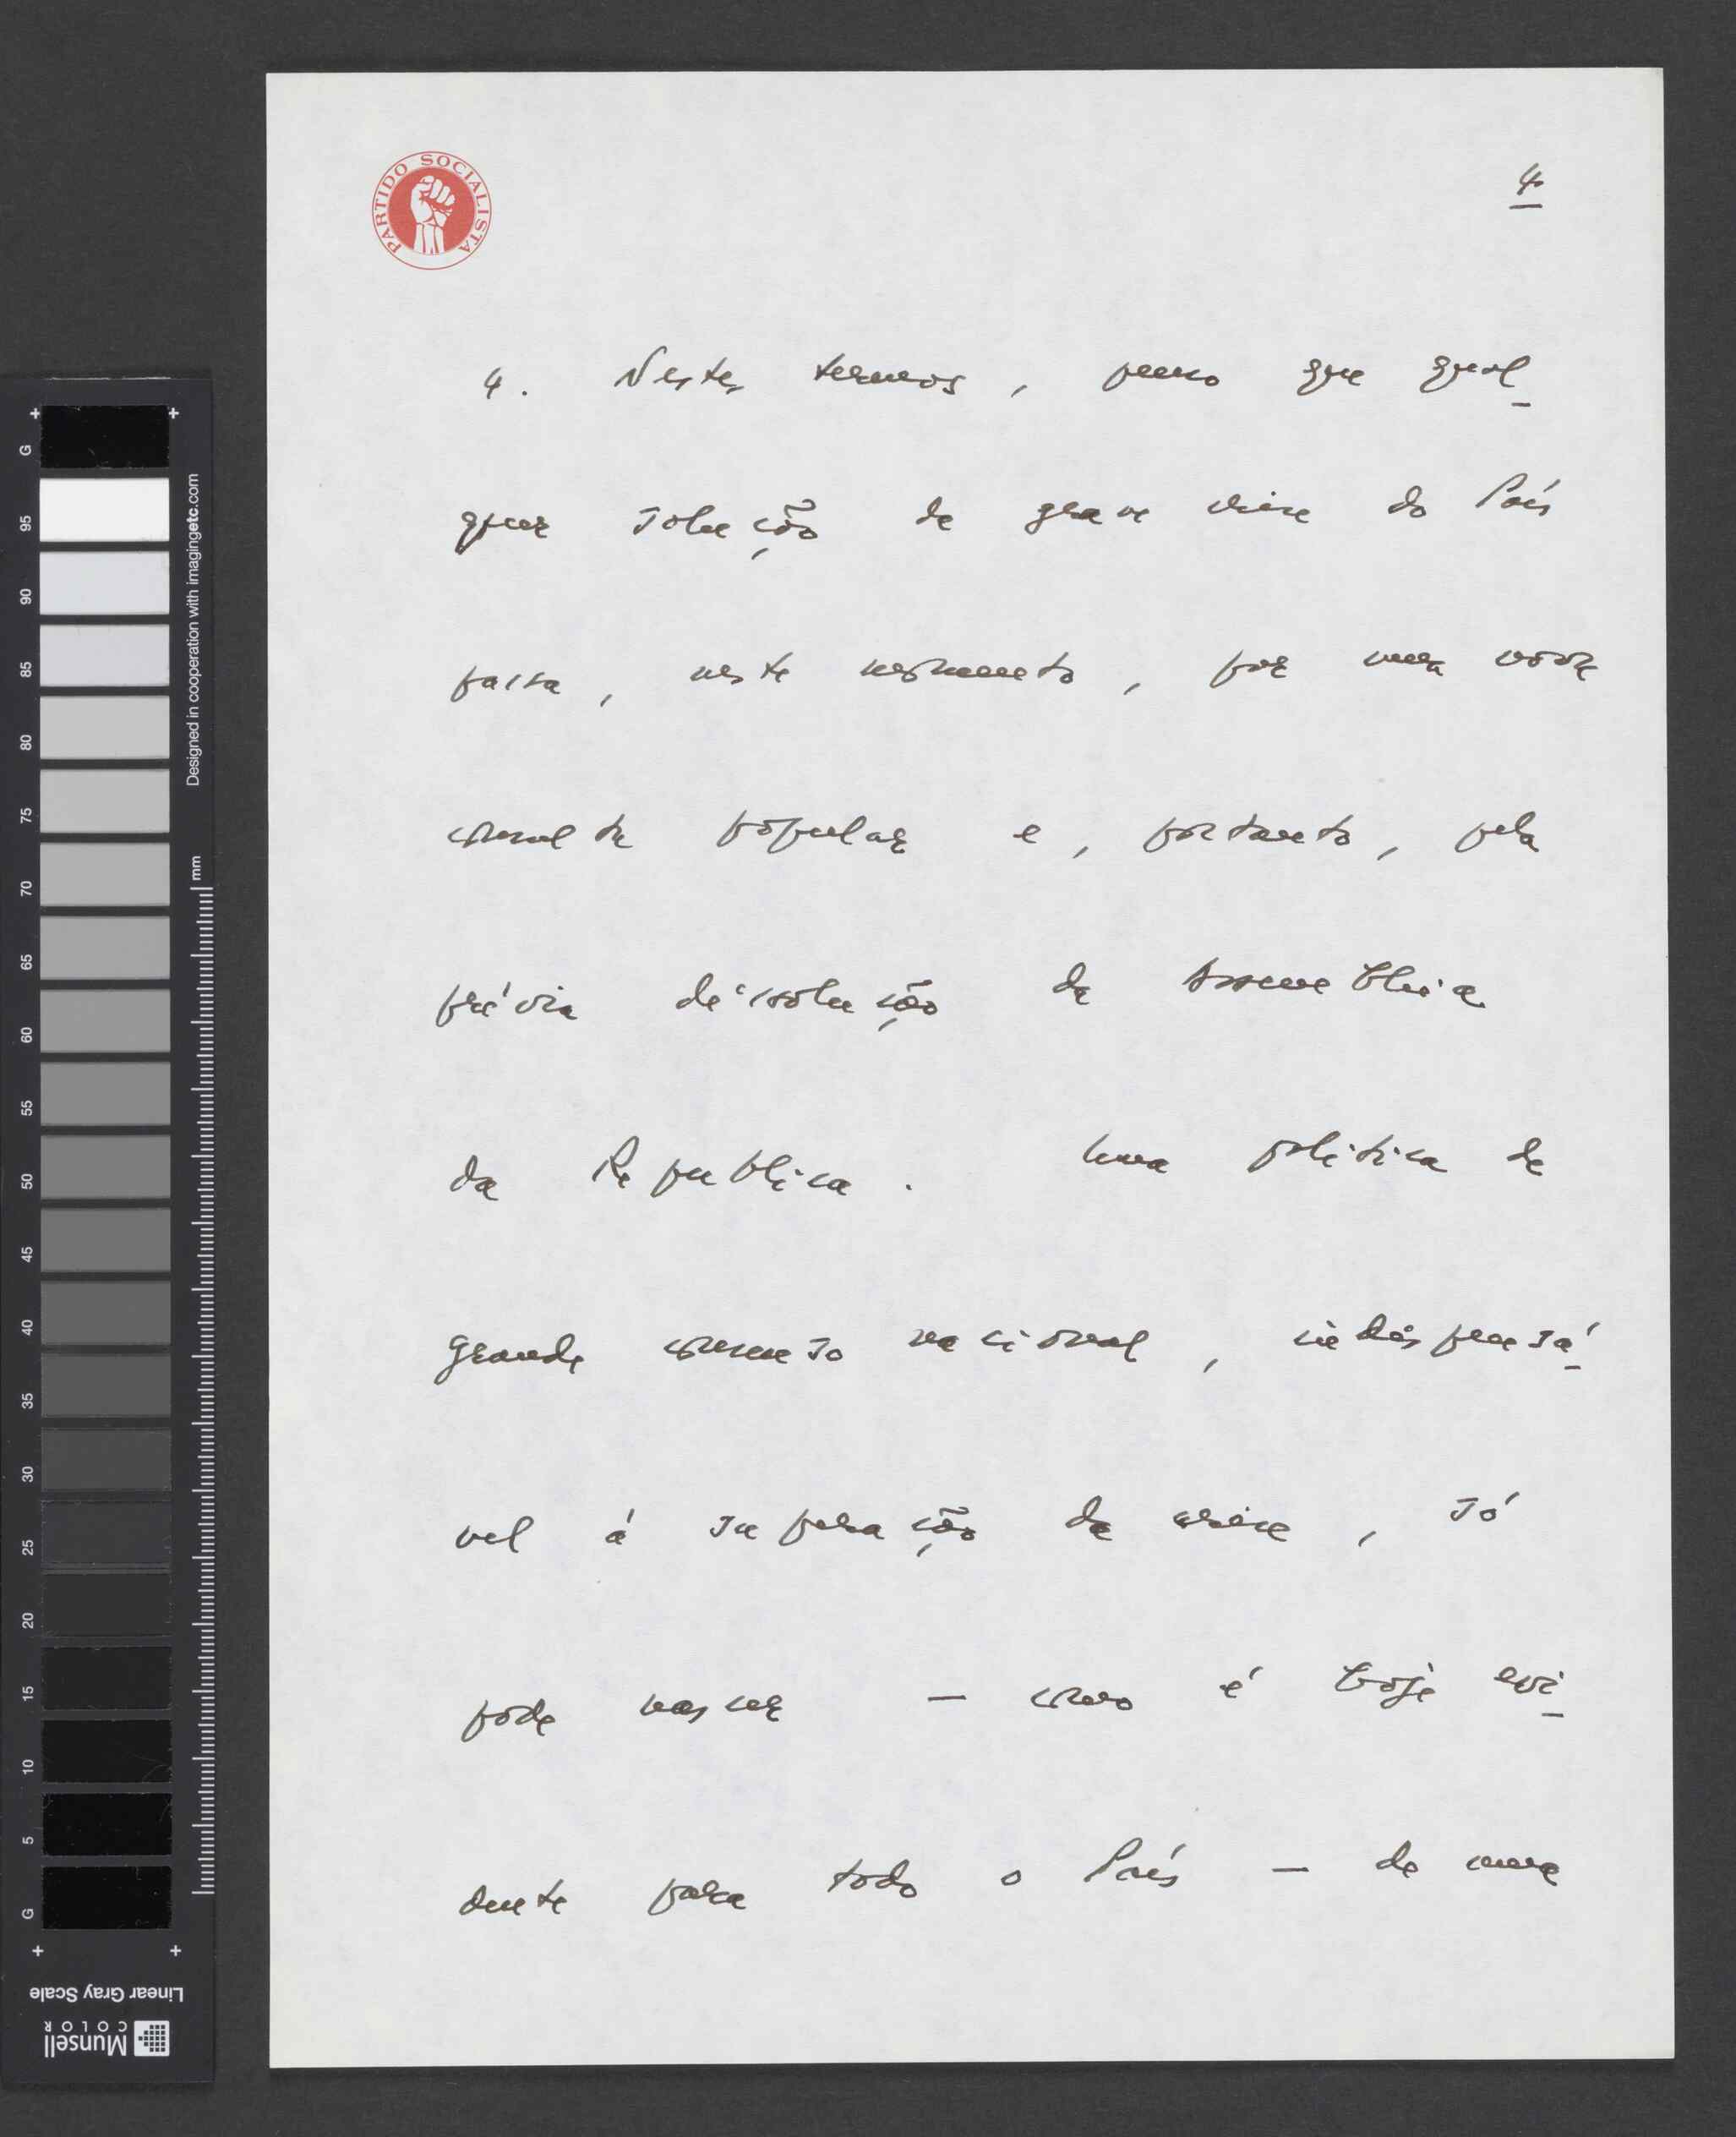 PARTIDO SOCIALISTA
4
4. Nestes termos, penso que qual-
quer solução da grave crise do País
passa, neste momento, por uma nova
consulta popular e, portanto, pela
prévia dissolução da Assembleia
da Republica. Uma politica de
grande consenso nacional, indispensá-
vel á superação da crise, só
pode nascer — como é hoje evi-
dente para todo o País — de uma
G 95 90 85 80 75 70 65 60 55 50 45 40 35 30 25 20 15 10 5 G
Designed in cooperation with imagingetc.com
mm
Linear Gray Scale
Munsell
COLOR